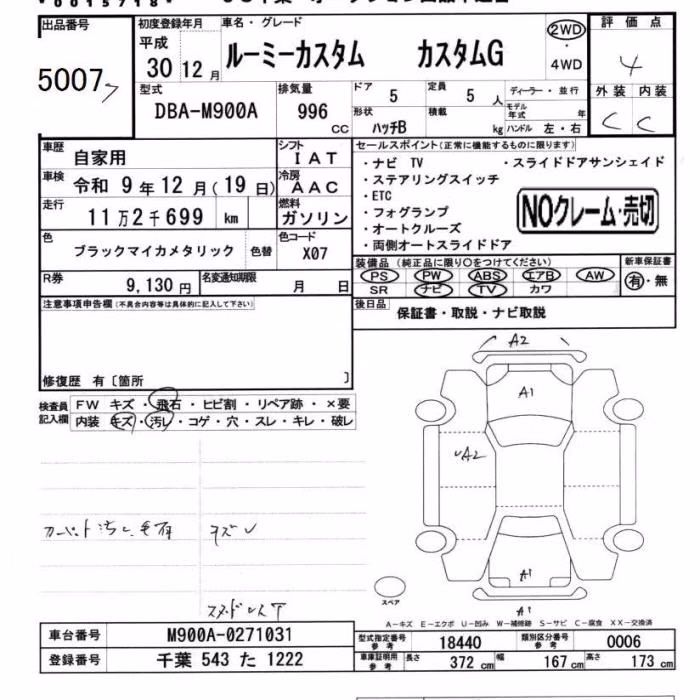 0015718
出品番号
5007
初度登録年月
平成
30 12 月
車名・グレード
ルーミーカスタム カスタムG
2WD
・
4WD
評価点
4
外装 内装
C C
型式
DBA-M900A
排気量
996
CC
ドア 5
定員 5 人
ディーラー・並行
形状 ハッチB
積載 kg
モデル年式 年
ハンドル 左・右
車歴 自家用
シフト IAT
車検 令和 9 年 12 月(19 日)
冷房 AAC
走行 11万2千699 km
燃料 ガソリン
色 ブラックマイカメタリック 色替
色コード X07
R券 9,130 円
名変通知期限 月 日
セールスポイント(正常に機能するものに限ります)
・ナビ TV ・スライドドアサンシェイド
・ステアリングスイッチ
・ETC
・フォグランプ
・オートクルーズ
・両側オートスライドドア
NOクレーム・売切
装備品(純正品に限り〇をつけてください)
PS PW ABS エアB AW
SR ナビ TV カワ
新車保証書
有・無
後日品 保証書・取説・ナビ取説
注意事項申告欄(不具合内容等は具体的に記入して下さい)
修復歴 有〔箇所 〕
検査員記入欄
FW キズ・飛石・ヒビ割・リペア跡・×要
内装 キズ・汚レ・コゲ・穴・スレ・キレ・破レ
カーペット汚レ
A2
A1
A2
A1
A1
スペア
A-キズ E-エクボ U-凹み W-補修跡 S-サビ C-腐食 XX-交換済
車台番号 M900A-0271031
登録番号 千葉 543 た 1222
型式指定番号 参考 18440
類別区分番号 参考 0006
車庫証明用 参考 長さ 372 cm 幅 167 cm 高さ 173 cm